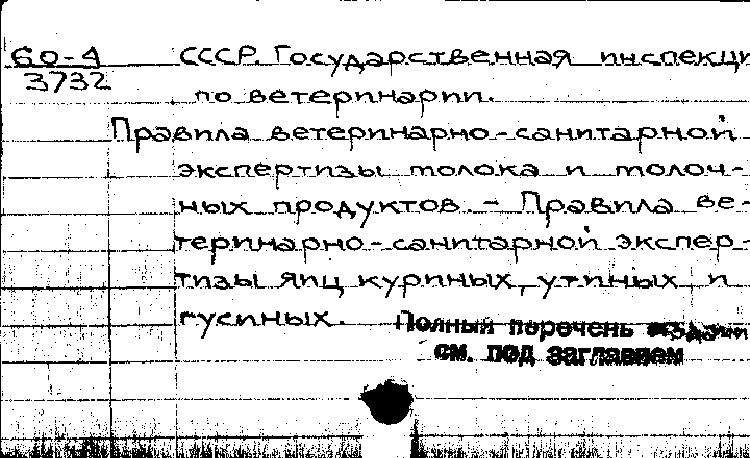 60-4 СССР. Государственная инспекци
3732
по ветеринарии.
Правила ветеринарно-санитарной
экспертизы молока и молоч-
ных продуктов. - Правила ве-
теринарно-санитарной экспер-
тизы яиц куриных, утиных и
гусиных.
Полный перечень изданий
см. под заглавием